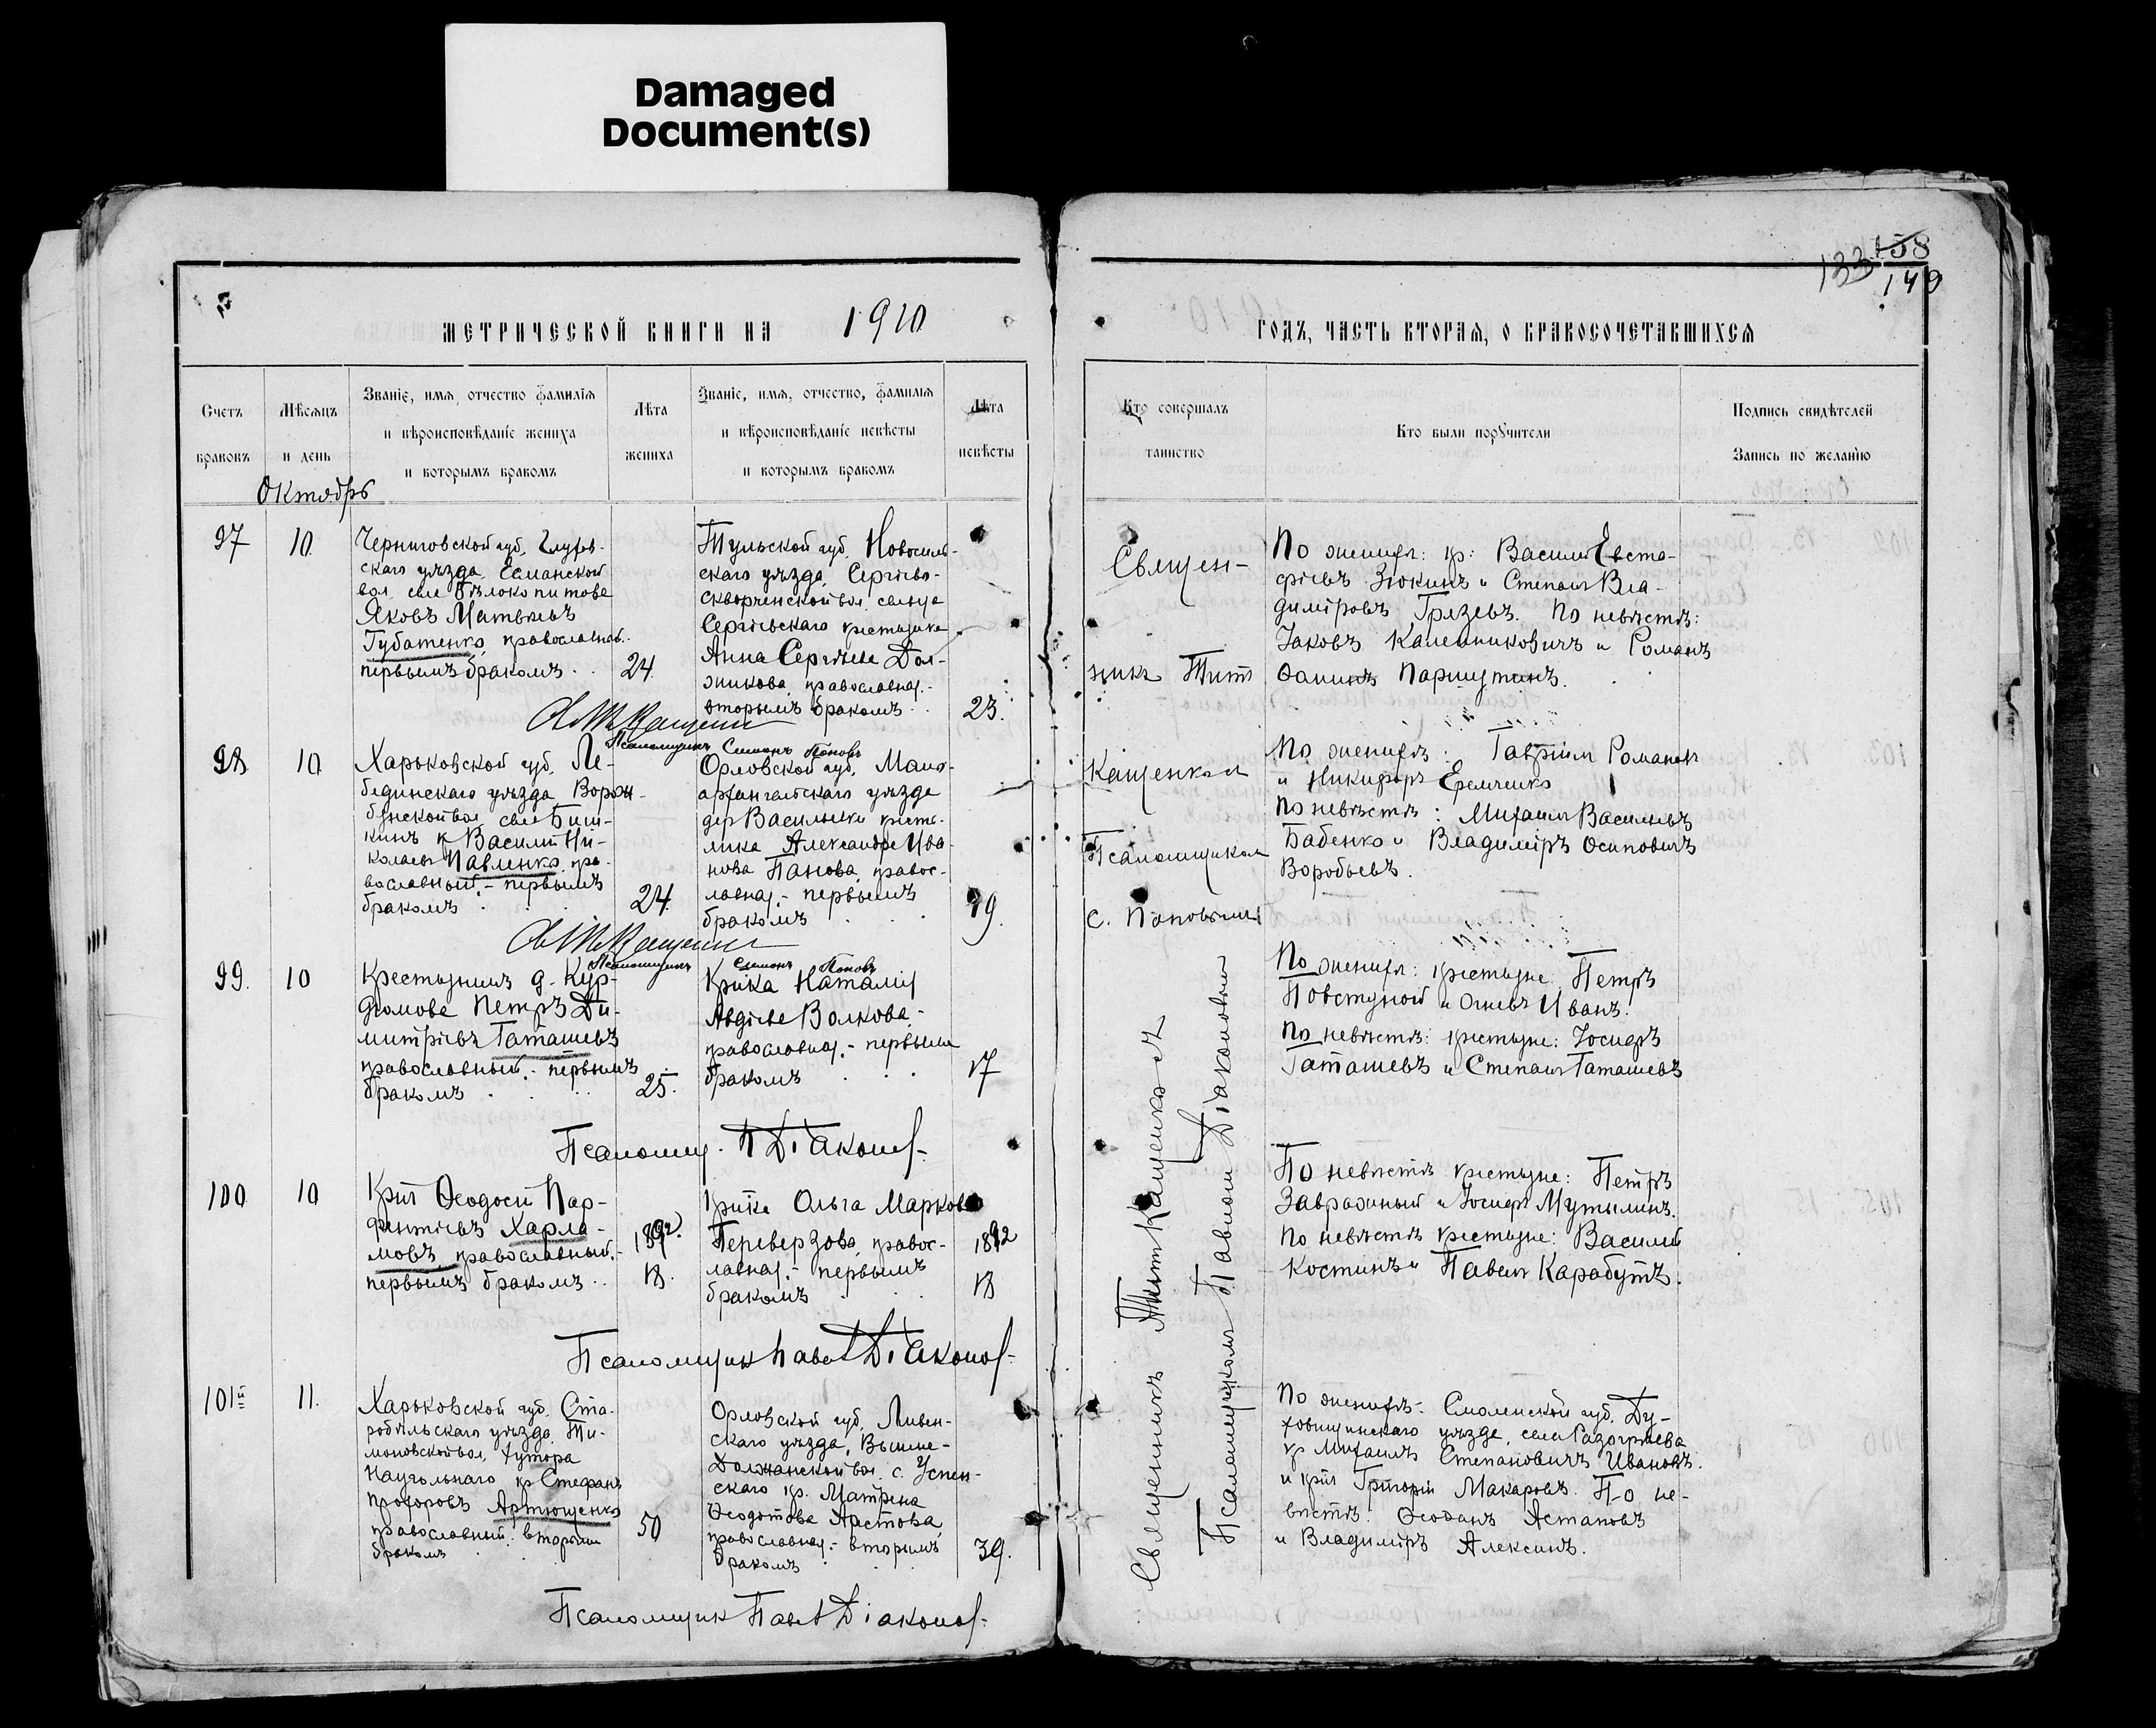 Damaged
Document(s)
133 158
149
МЕТРИЧЕСКОЙ КНИГИ НА 1910
ГОДЪ, ЧАСТЬ ВТОРАЯ, О БРАКОСОЧЕТАВШИХСЯ
Счетъ
браковъ
Мѣсяцъ
и день
Званіе, имя, отчество фамилія
и вѣроисповѣданіе жениха
и которымъ бракомъ
Лѣта
жениха
Званіе, имя, отчество, фамилія
и вѣроисповѣданіе невѣсты
и которымъ бракомъ
Лѣта
невѣсты
Кто совершалъ
таинство
Кто были поручители
Подпись свидѣтелей
Запись по желанію
Октябрь
97
10.
Черниговской губ. Глухов-
скаго уѣзда, Есманской
вол. села Бѣлокопитова
Яковъ Матвѣевъ
Губатенко, православн.
первымъ бракомъ
24.
Тульской губ. Новосиль-
скаго уѣзда, Сергіево-
Скворченской вол. сельца
Сергіевскаго крестьянка
Анна Сергѣева Дол-
жикова, православная.-
вторымъ бракомъ
23.
По женихѣ: кр: Василій Евста-
фіевъ Зюкинъ и Степанъ Вла-
диміровъ Грязевъ. По невѣстѣ:
Іаковъ Калинниковичъ и Романъ
Ѳоминъ Паршутинъ.
Псаломщикъ Симонъ Поповъ
98
10
Харьковской губ. Ле-
бединскаго уѣзда
вол. села Биш-
кинъ к Василій Ни-
колаевъ Павленко, пра-
вославный.- первымъ
бракомъ
24.
Орловской губ. Мало-
архангельскаго уѣзда
дер Васильевки кресть-
янка Александра Ива-
нова Панова, правос-
лавная.- первымъ
бракомъ
19.
По женихѣ: Гавріилъ Романовъ
и Никифоръ Еремченко
По невѣстѣ: Михаилъ Васильевъ
Бабенко и Владиміръ Осиповичъ
Воробьевъ.
Псаломщикъ Симонъ Поповъ
99.
10
Крестьянинъ д. Кур-
дюмова Петръ Ди-
митріевъ Таташевъ
православный.- первымъ
бракомъ
25.
Кр-ка Наталія
Авдіева Волкова.-
православная.- первымъ
бракомъ
17
По женихѣ: крестьяне: Петръ
Повстуной и Огневъ Иванъ.
По невѣстѣ: крестьяне: Іосифъ
Таташевъ и Степанъ Таташевъ
Псаломщ. П Діаконов-
100
10
Кр-нъ Ѳеодосій Пар-
фентіевъ Харла-
мовъ православный.-
первымъ бракомъ
1892.
18.
Кр-ка Ольга Маркова
Переверзова, правос-
лавная.- первымъ
бракомъ
1892
18
По невѣстѣ крестьяне: Петръ
Завражный и Іосифъ Мутылинъ.
По невѣстѣ крестьяне: Василій
Костинъ и Павелъ Карабутъ.
Псаломщик Павел Діаконов-
101й
11.
Харьковской губ. Ста-
робѣльскаго уѣзда, Ти-
моновской вол, хутора
Наугольнаго кр Стефанъ
Прохоровъ Артющенко
православный. вторымъ
бракомъ
50
Орловской губ. Ливен-
скаго уѣзда, Вышне-
Должанской вол. с. Успен-
скаго кр. Матрена
Ѳеодотова
православная.- вторымъ
бракомъ
39.
По женихѣ: Смоленской губ. Ду-
ховщинскаго уѣзда, села
кр Михаилъ Степановичъ Ивановъ.
и кр-нъ Григорій Макаровъ. По не-
вѣстѣ. Астаповъ
и Владиміръ Алексинъ.
Псаломщик Павел Діаконов-
Священ-
никъ Титъ
Кащенко съ
Псаломщикомъ
С. Поповымъ
Священникъ Титъ Кащенко съ
Псаломщикомъ Павломъ Діаконовымъ